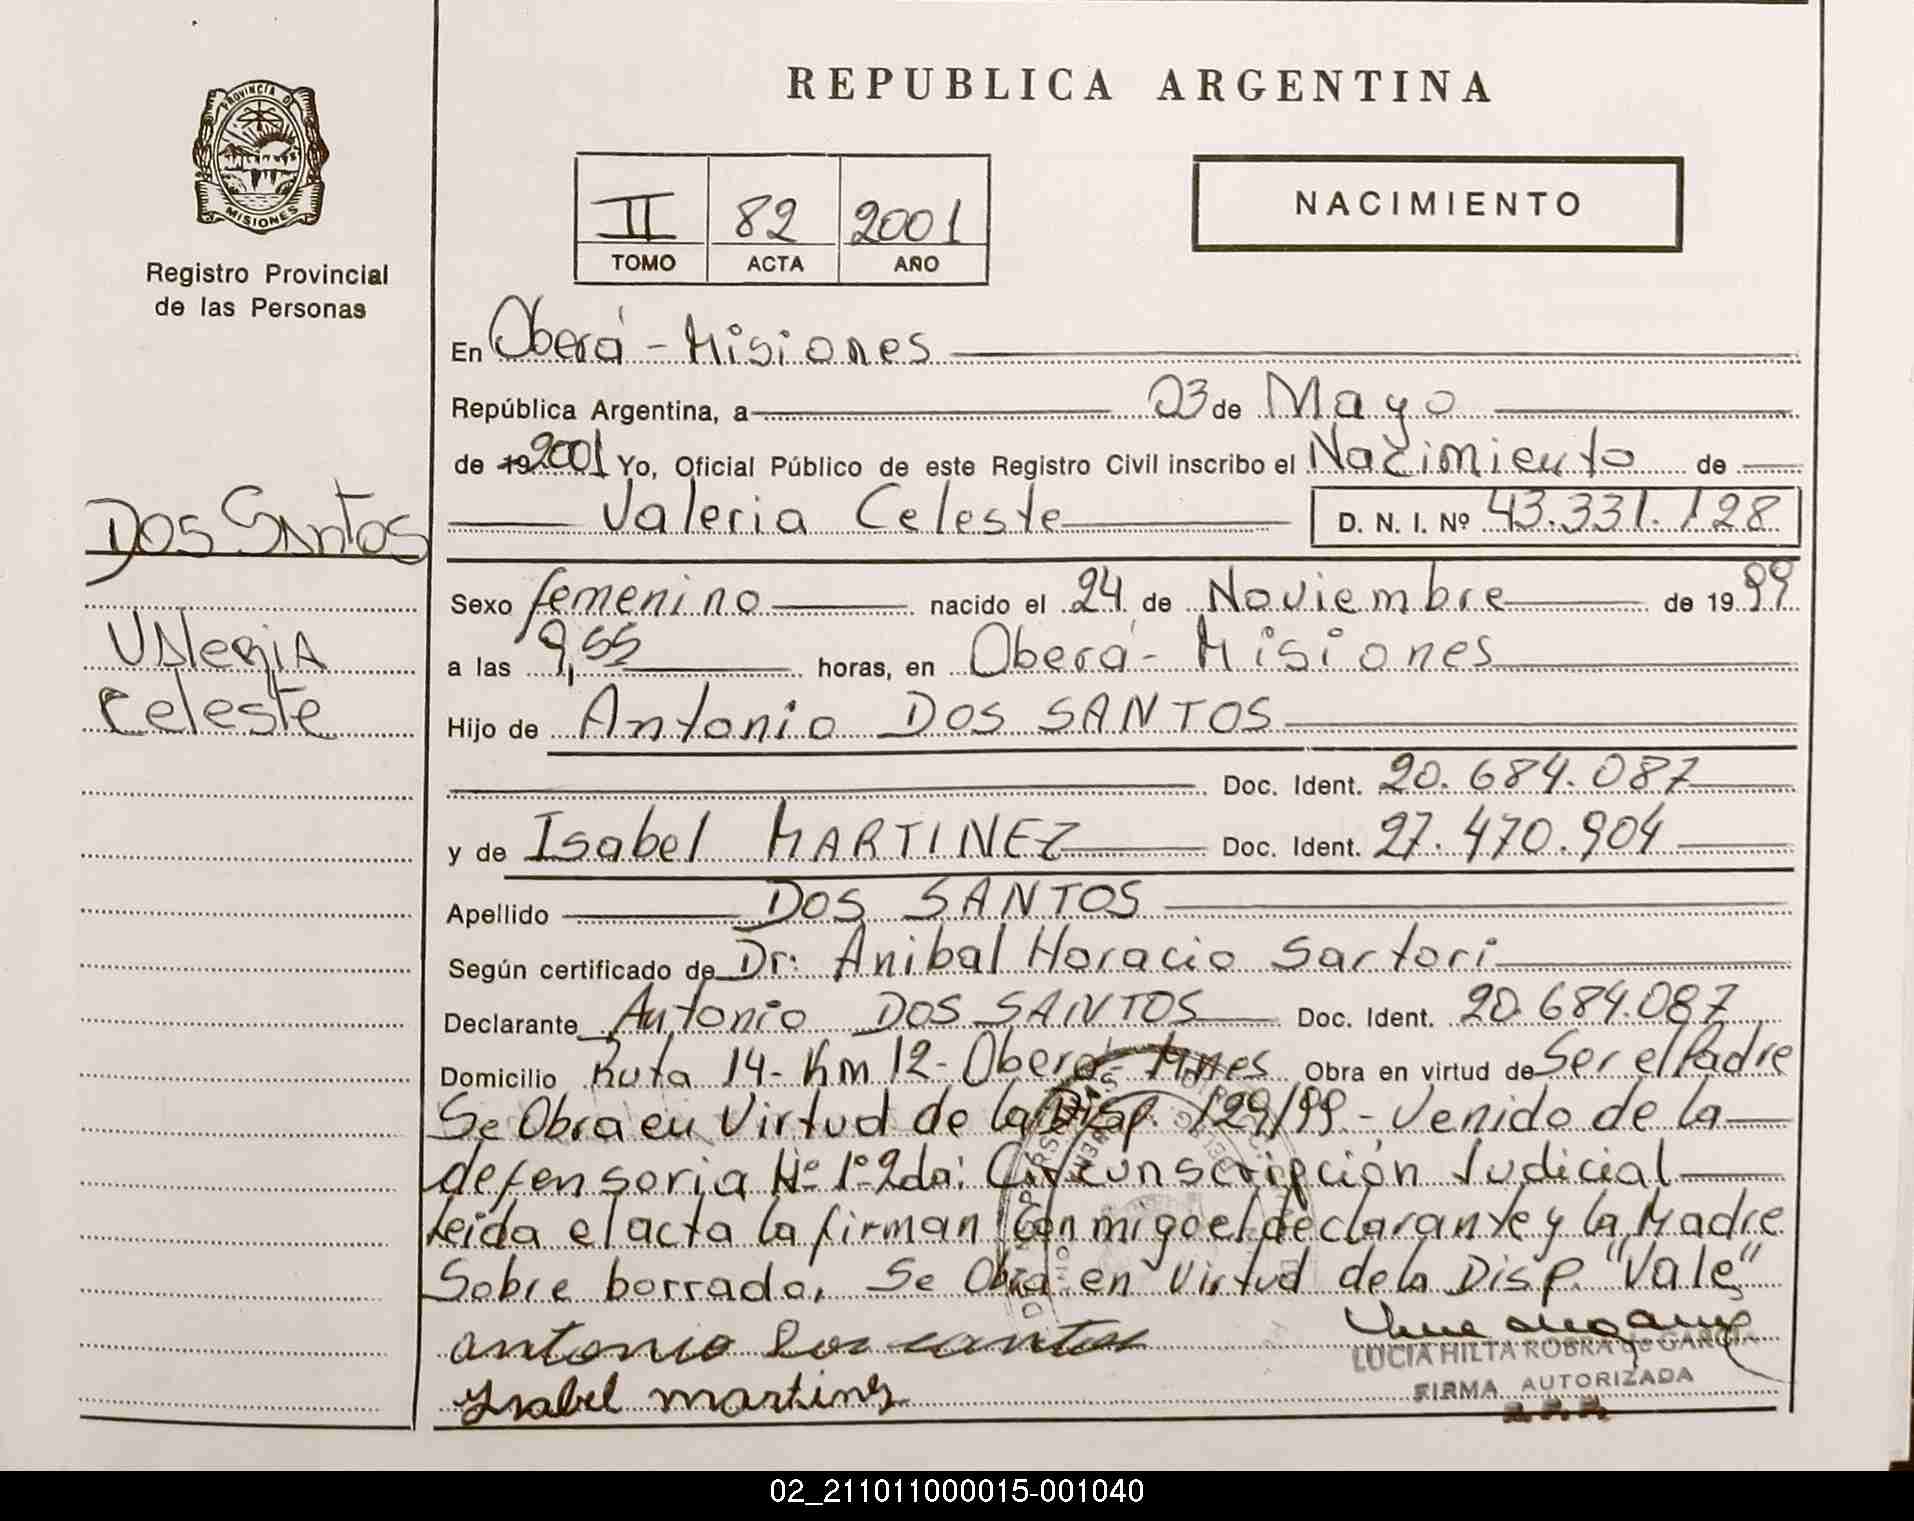 REPUBLICA ARGENTINA
PROVINCIA DE
MISIONES
Registro Provincial
de las Personas
II 82 2001
TOMO ACTA AÑO
NACIMIENTO
En Oberá - Misiones
República Argentina, a 03 de Mayo
de 19 2001 Yo, Oficial Público de este Registro Civil inscribo el Nacimiento de
Valeria Celeste D. N. I. Nº 43.331.128
DOS SANTOS
Valeria
Celeste
Sexo femenino nacido el 24 de Noviembre de 1999
a las 9,55 horas, en Oberá - Misiones
Hijo de Antonio DOS SANTOS
Doc. Ident. 20.684.087
y de Isabel MARTINEZ Doc. Ident. 27.470.904
Apellido DOS SANTOS
Según certificado de Dr: Anibal Horacio Sartori
Declarante Antonio DOS SANTOS Doc. Ident. 20.684.087
Domicilio Ruta 14 - Km 12 - Oberá - Mnes Obra en virtud de Ser el Padre
Se Obra en Virtud de la Disp. 129/99 - Venido de la
defensoria Nº 1º 2da: Circunscripción Judicial
Leida el acta la firman Conmigo el declarante y la Madre
Sobre borrado. Se Obra en Virtud de la Disp. "Vale"
antonio dos santos
LUCIA HILTA ROBRA de GARCIA
FIRMA AUTORIZADA
Isabel martines
02_211011000015-001040